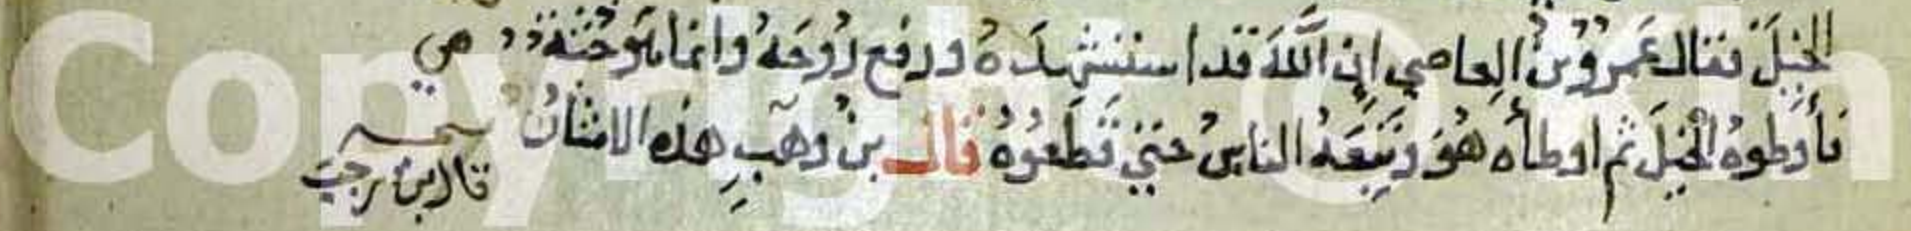 الخَيْلَ فقال عَمرُو بْنُ العاصي إن اللَّهَ قد استشهدَهُ ورفع رُوحَهُ وانما هو جُثَّة هي
فأوطوهُ الْخَيْلَ ثم اوطأه هُوَ وتَبِعَهُ الناسُ حَتى قَطَعُوهُ قال بن وهب هذه الامثان
قال ابن رجب
Copyright ©